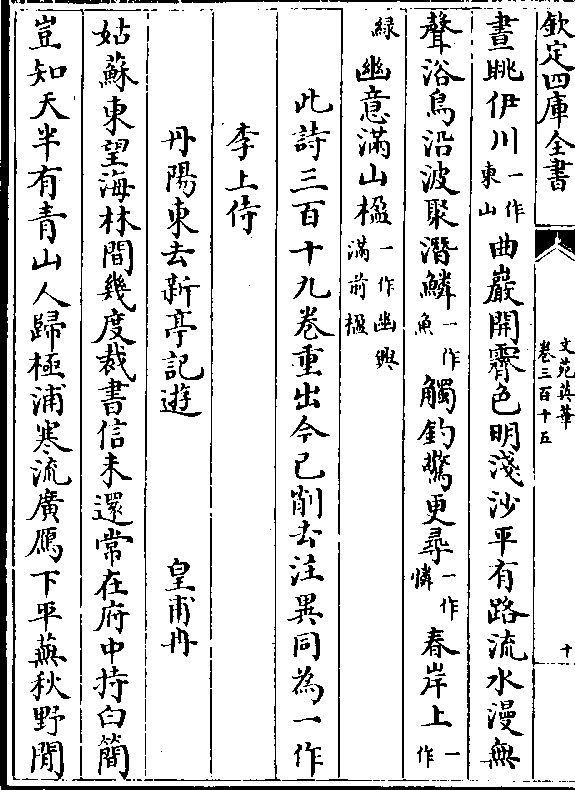 欽定四庫全書
文苑英華
卷三百十五
十
晝眺伊川一作東山曲巖開霽色明淺沙平有路流水漫無
聲浴鳥沿波聚潛鱗一作魚觸釣驚更尋一作憐春岸上一作
緑幽意滿山楹一作幽興滿前楹
此詩三百十九卷重出今已削去注異同為一作
李上侍
丹陽東去新亭記遊
皇甫冉
姑蘇東望海林間幾度裁書信未還常在府中持白簡
豈知天半有青山人歸極浦寒流廣鴈下平蕪秋野閒